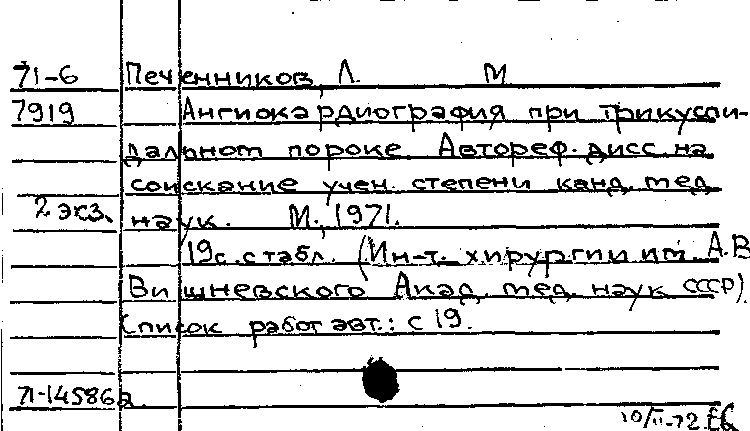 71-6 Печенников, Л. М
7919 Ангиокардиография при трикуспи-
дальном пороке. Автореф. дисс. на
соискание учен. степени канд. мед.
2 экз. наук. М., 1971.
19 с. с табл. (Ин-т. хирургии им. А.В
Вишневского Акад. мед. наук СССР).
Список работ авт.: с 19.
71-14586а
10/II-72